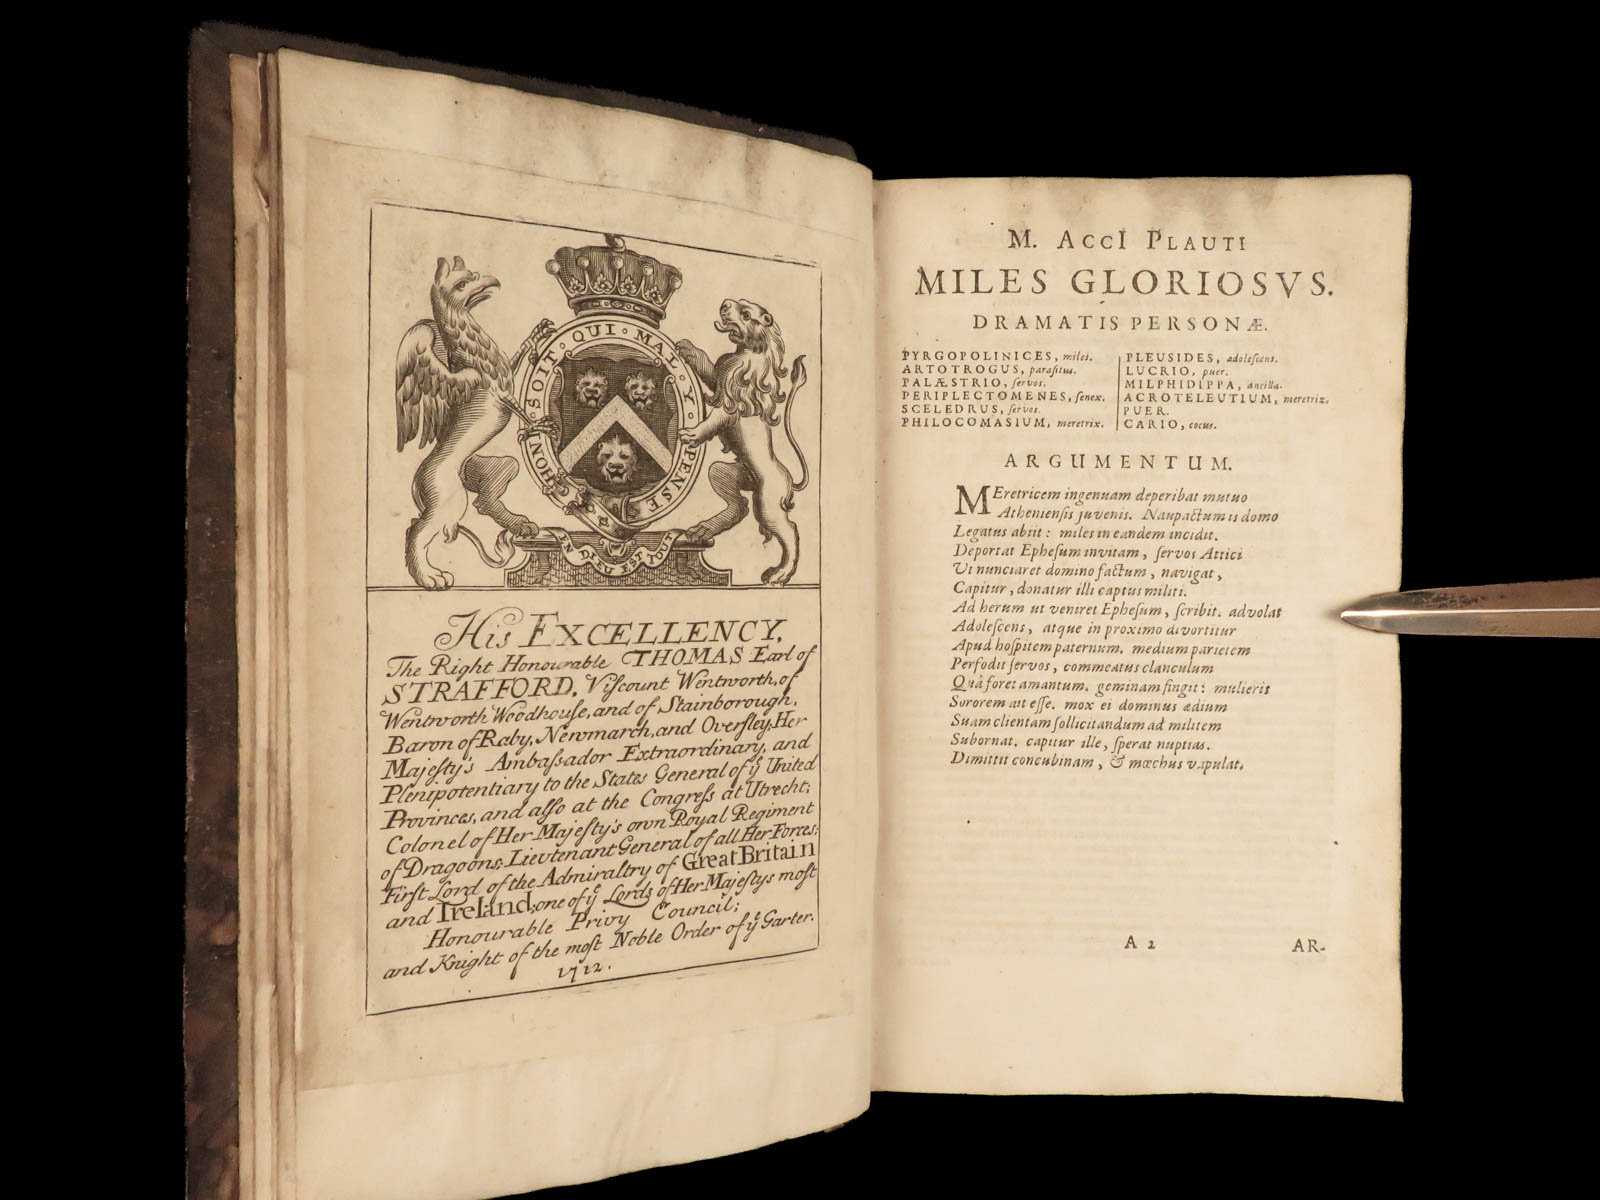 HONI · SOIT · QUI · MAL · Y · PENSE
EN DIEU EST TOUT
His EXCELLENCY,
The Right Honourable THOMAS Earl of
STRAFFORD, Viſcount Wentworth, of
Wentworth Woodhouſe, and of Stainborough,
Baron of Raby, Newmarch, and Overſley, Her
Majeſty's Ambaſsador Extraordinary, and
Plenipotentiary to the States General of yᵉ United
Provinces, and alſo at the Congreſs at Utrecht;
Colonel of Her Majeſty's own Royal Regiment
of Dragoons; Lieutenant General of all Her Forces;
Firſt Lord of the Admiraltry of Great Britain
and Ireland; one of yᵉ Lords of Her Majeſtys moſt
Honourable Privy Council;
and Knight of the moſt Noble Order of yᵉ Garter.
1712.
M. ACCI PLAUTI
MILES GLORIOSVS.
DRAMATIS PERSONÆ.
PYRGOPOLINICES, miles.
ARTOTROGUS, paraſitus.
PALÆSTRIO, ſervos.
PERIPLECTOMENES, ſenex.
SCELEDRUS, ſervos.
PHILOCOMASIUM, meretrix.
PLEUSIDES, adoleſcens.
LUCRIO, puer.
MILPHIDIPPA, ancilla.
ACROTELEUTIUM, meretrix.
PUER.
CARIO, cocus.
ARGUMENTUM.
MEretricem ingenuam deperibat mutuo
Athenienſis juvenis. Naupactum is domo
Legatus abiit: miles in eandem incidit.
Deportat Epheſum invitam, ſervos Attici
Ut nunciaret domino factum, navigat,
Capitur, donatur illi captus militi.
Ad herum ut veniret Epheſum, ſcribit. advolat
Adoleſcens, atque in proximo divortitur
Apud hoſpitem paternum. medium parietem
Perfodit ſervos, commeatus clanculum
Quâ foret amantum. geminam fingit: mulieris
Sororem ait eſſe. mox ei dominus ædium
Suam clientam ſollicitandum ad militem
Subornat. capitur ille, ſperat nuptias.
Dimittit concubinam, & mœchus vapulat.
A 2
AR-